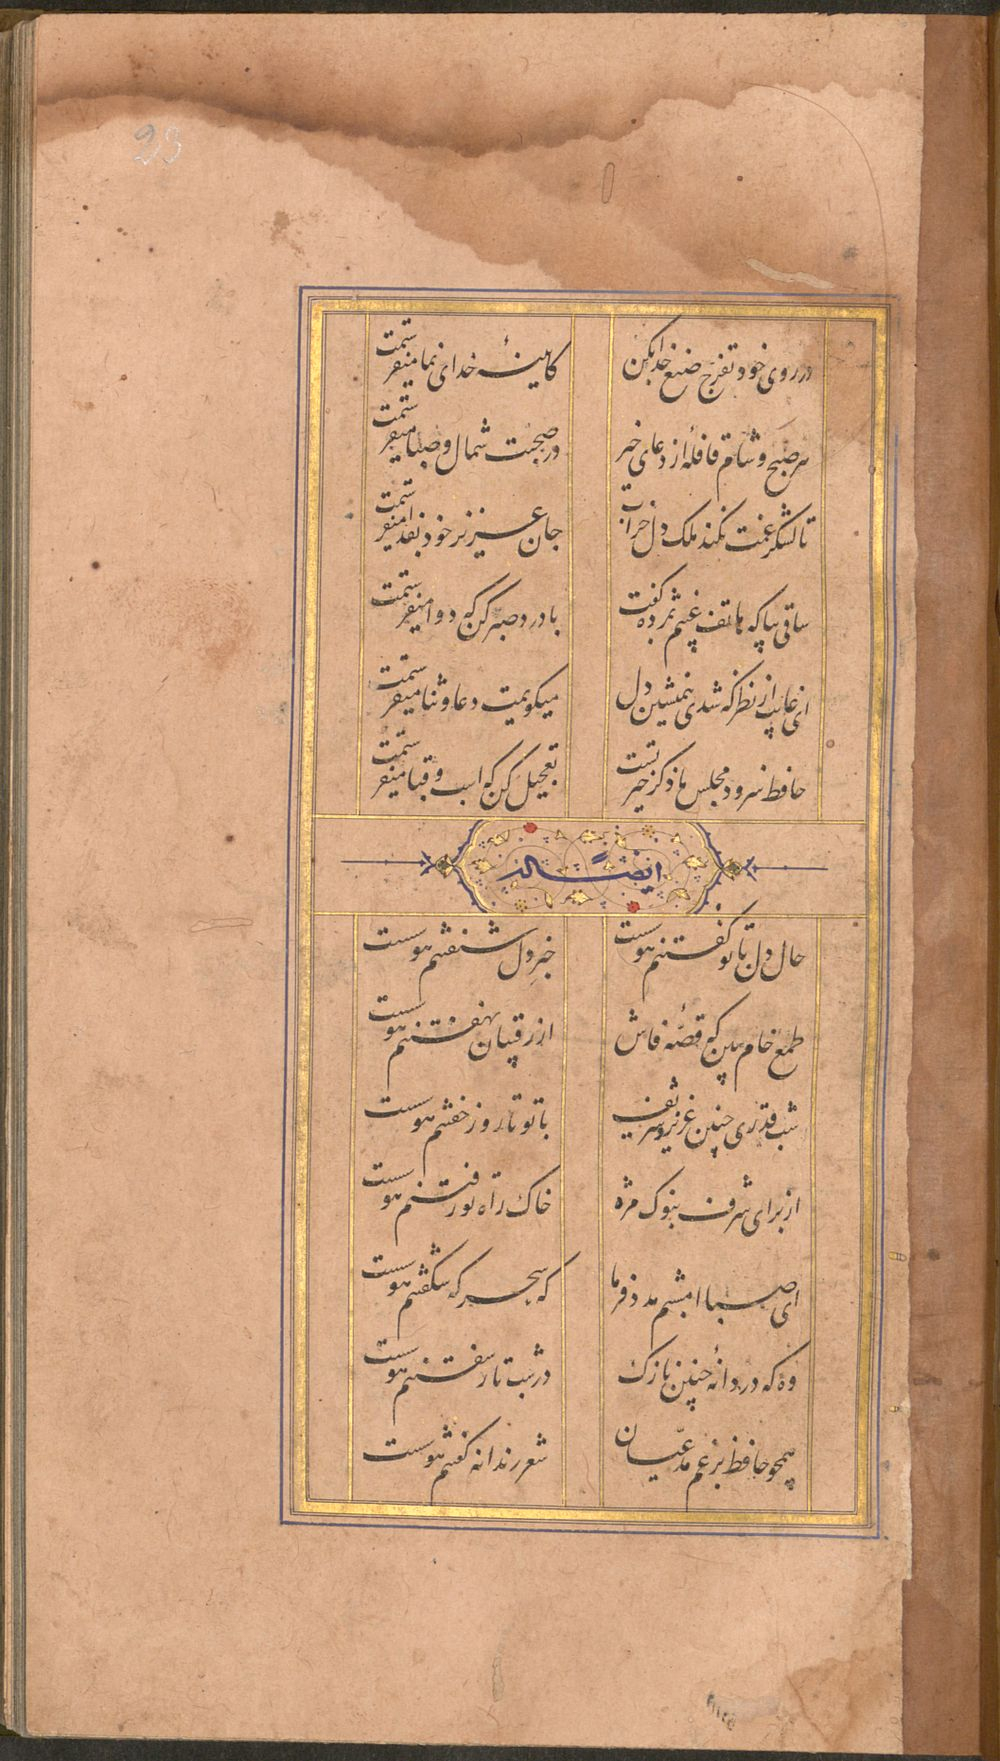 23
در روی خود تفرج صنع خدا بکن کایینهٔ خدای نما میفرستمت
هر صبح و شام قافلهٔ از دعای خیر در صحبت شمال و صبا میفرستمت
تا لشکر غمت نکند ملک دل خراب جان عزیز خود بنوا میفرستمت
ساقی بیا که هاتف غیبم بمژده گفت با درد صبر کن که دوا میفرستمت
ای غایب از نظر که شدی همنشین دل میگویمت دعا و ثنا میفرستمت
حافظ سرود مجلس ما ذکر خیر تست تعجیل کن که اسب و قبا میفرستمت
ایضا له
حال دل با تو گفتنم هوست خبر دل شنفتنم هوست
طمع خام بین که قصّهٔ فاش از رقیبان نهفتنم هوست
شب قدری چنین عزیز و شریف با تو تا روز خفتنم هوست
از برای شرف بنوک مژه خاک راه تو رفتنم هوست
ای صبا امشبم مدد فرما که سحر که شکفتنم هوست
وه که دردانهٔ چنین نازک در شب تار سفتنم هوست
همچو حافظ بزعم مدعیان شعر رندانه گفتنم هوست